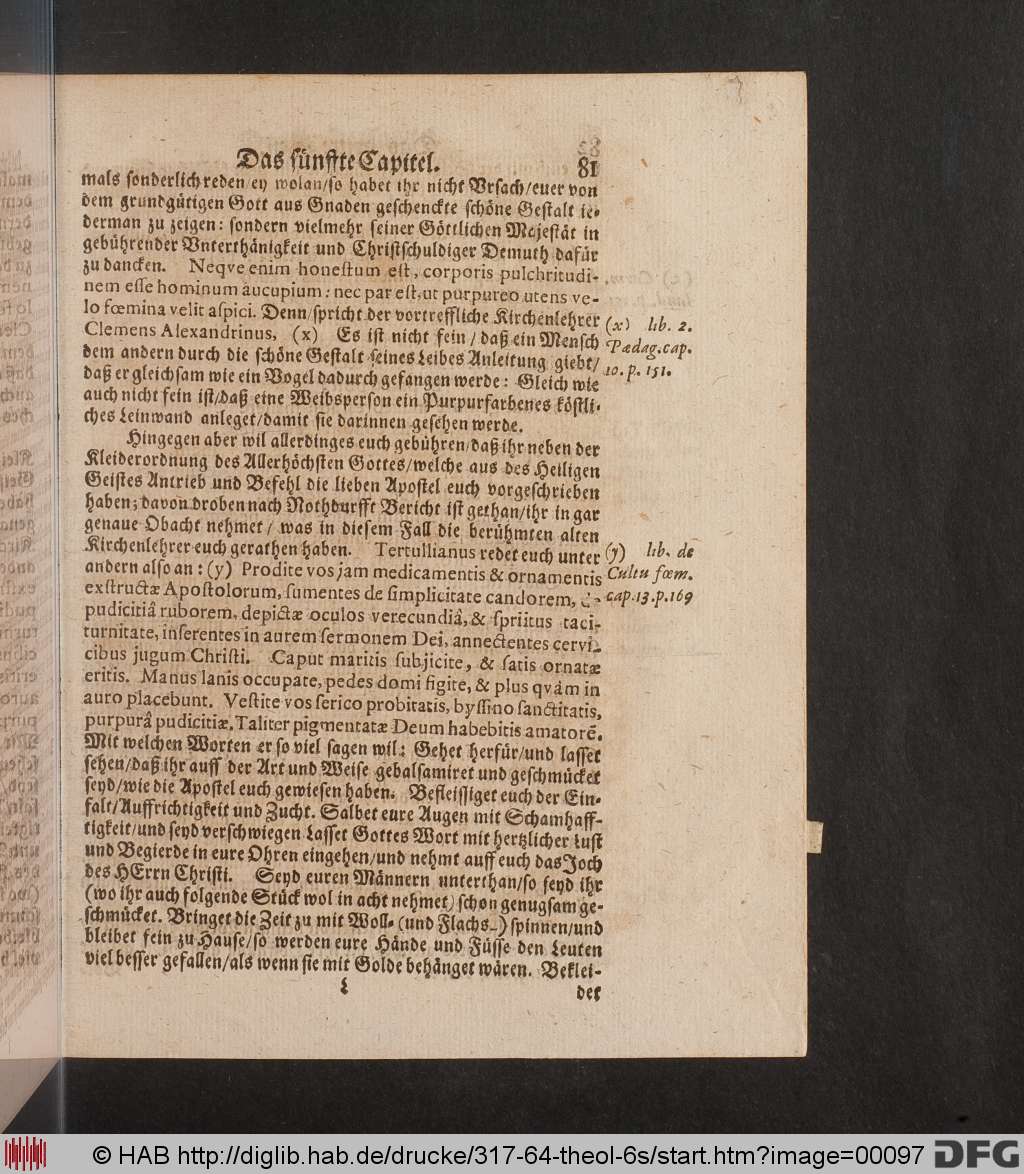 Das fünffte Capitel. 81
mals sonderlich reden/ey wolan/so habet ihr nicht Ursach/euer von
dem grundgütigen Gott aus Gnaden geschenckte schöne Gestalt ie-
derman zu zeigen: sondern vielmehr seiner Göttlichen Majestät in
gebührender Unterthänigkeit und Christschuldiger Demuth dafür
zu dancken. Neqve enim honestum est, corporis pulchritudi-
nem esse hominum aucupium: nec par est, ut purpureo utens ve-
lo fœmina velit aspici. Denn/spricht der vortreffliche Kirchenlehrer
Clemens Alexandrinus, (x) Es ist nicht fein/daß ein Mensch
dem andern durch die schöne Gestalt seines Leibes Anleitung giebt/
daß er gleichsam wie ein Vogel dadurch gefangen werde: Gleich wie
auch nicht fein ist/daß eine Weibsperson ein Purpurfarbenes köstli-
ches Leinwand anleget/damit sie darinnen gesehen werde.
(x) lib. 2.
Pædag. cap.
10. p. 151.
Hingegen aber wil allerdinges euch gebühren/daß ihr neben der
Kleiderordnung des Allerhöchsten Gottes/welche aus des Heiligen
Geistes Antrieb und Befehl die lieben Apostel euch vorgeschrieben
haben; davon droben nach Nothdurfft Bericht ist gethan/ihr in gar
genaue Obacht nehmet/was in diesem Fall die berühmten alten
Kirchenlehrer euch gerathen haben. Tertullianus redet euch unter
andern also an: (y) Prodite vos jam medicamentis & ornamentis
exstructæ Apostolorum, sumentes de simplicitate candorem, de
pudicitiâ ruborem, depictæ oculos verecundiâ, & spriitus taci-
turnitate, inserentes in aurem sermonem Dei, annectentes cervi-
cibus jugum Christi. Caput maritis subjicite, & satis ornatæ
eritis. Manus lanis occupate, pedes domi figite, & plus qvàm in
auro placebunt. Vestite vos serico probitatis, byssino sanctitatis,
purpurâ pudicitiæ. Taliter pigmentatæ Deum habebitis amatorē.
Mit welchen Worten er so viel sagen wil: Gehet herfür/und lasset
sehen/daß ihr auff der Art und Weise gebalsamiret und geschmücket
seyd/wie die Apostel euch gewiesen haben. Befleissiget euch der Ein-
falt/Auffrichtigkeit und Zucht. Salbet eure Augen mit Schamhaff-
tigkeit/und seyd verschwiegen Lasset Gottes Wort mit hertzlicher Lust
und Begierde in eure Ohren eingehen/und nehmt auff euch das Joch
des HErrn Christi. Seyd euren Männern unterthan/so seyd ihr
(wo ihr auch folgende Stück wol in acht nehmet) schon genugsam ge-
schmücket. Bringet die Zeit zu mit Woll- (und Flachs-) spinnen/und
bleibet fein zu Hause/so werden eure Hände und Füsse den Leuten
viel besser gefallen/als wenn sie mit Golde behänget wären. Beklei-
(y) lib. de
Cultu fœm.
cap. 13. p. 169
L det
© HAB http://diglib.hab.de/drucke/317-64-theol-6s/start.htm?image=00097
DFG